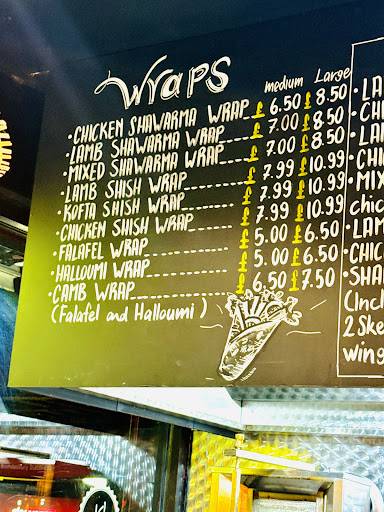 Wraps
medium Large
• CHICKEN SHAWARMA WRAP £6.50 £8.50
• LAMB SHAWARMA WRAP £7.00 £8.50
• MIXED SHAWARMA WRAP £7.00 £8.50
• LAMB SHISH WRAP £7.99 £10.99
• KOFTA SHISH WRAP £7.99 £10.99
• CHICKEN SHISH WRAP £7.99 £10.99
• FALAFEL WRAP £5.00 £6.50
• HALLOUMI WRAP £5.00 £6.50
• CAMB WRAP £6.50 £7.50
(Falafel and Halloumi)
• LA
• CHI
• LA
• CHI
• MIX
chic
• LAM
• CHIC
• SHA
(Inc
2 Ske
wing